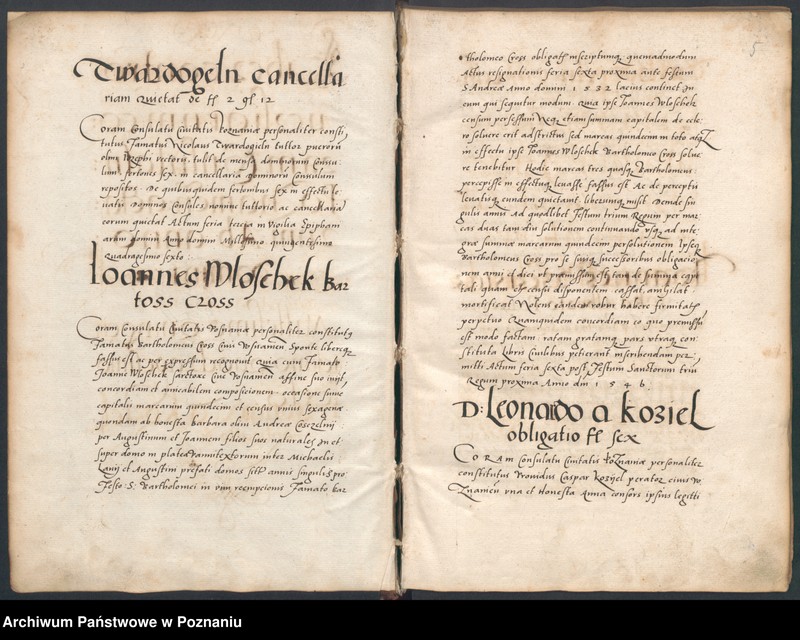 Twardogeln cancella
riam quietat de fl 2 gl 12
Coram Consulatu Civitatis Poznaniae personaliter consti
tutus Famatus Nicolaus Twardogeln tuttor puerorum
olim Josephi vectoris, tulit de mensa dominorum Consu
lum fertones sex in cancellaria dominorum Consulum
repositos. De quibusquidem fertonibus sex in effectu le
vatis Domnos Consules nomine tuttorio ac cancellaria
eorum quietat Actum feria tercia in Vigilia Epipha
arum domini Anno domini Millesimo quingentesimo
quadragesimo sexto
Ioannes Wloschek Bar
toss Cross
Coram Consulatu Civitatis Posnaniae personaliter constitutus
Famatus Bartholomeus Cross Civis Posnanien Sponte libereque
fassus est ac per expressum recognovit quia cum Famato
Ioanne Wloschek sartore cive Posnanien affine suo iniit
concordiam et amicabilem compositionem occasione sum
capitalis marcarum quindecim et census unius sexagenae
quondam ab honesta barbara olim Andreae
per Augustinum et Joannem filios suos naturales in et
super domo in platea inter Michaelis
et Augustini prefati domos sitis annis singulis pro
Festo S. Bartholomei in vim reempcionis Famato Bar
5
tholomeo Cross obligatis inscriptumque quemadmodum
Actus resignationis feria sexta proxima ante festum
S Andreae Anno domini 1532 lacius continet In
eum qui sequitur modum. quia ipse Joannes Wloschek
censum persessum Neque etiam summam capitalem de cete
ro solvere erit adstrictus sed marcas quindecim in toto atque
in effectu ipse Joannes Wloschek Bartholomeo Cross solve
re tenebitur Hodie marcas tres quasque Bartholomeus
percepisse in effectuque levasse fassus est Ac de perceptis
levatisque eundem quietavit liberumque misit Deinde sin
gulis annis Ad quodlibet Festum trium Regum per mar
cas duas tam diu solutionem continuando usque ad inte
gram summae marcarum quindecim persolutionem Ipseque
Bartholomeus Cross pro se suisque successoribus obligacio
nem anni et diei ut praemissum est, tam de summa capi
tali quam et censu disponentem cassat, anihilat
mortificat Nolens eandem robur habere firmitatis
perpetuo Quamquidem concordiam eo quo premissum
est modo factam ratam gratamque pars utraque con
stituta Libris Civilibus petierunt inscribendam per
mitti Actum feria sexta post Festum Sanctorum triu
Regum proxima Anno dni 1546
D: Leonardo a koziel
obligatio fl sex
Coram Consulatu Civitatis Poznaniae personaliter
constitutus Providus Caspar koziel civis Po
znanien una et Honesta Anna consors ipsius legitti
Archiwum Państwowe w Poznaniu